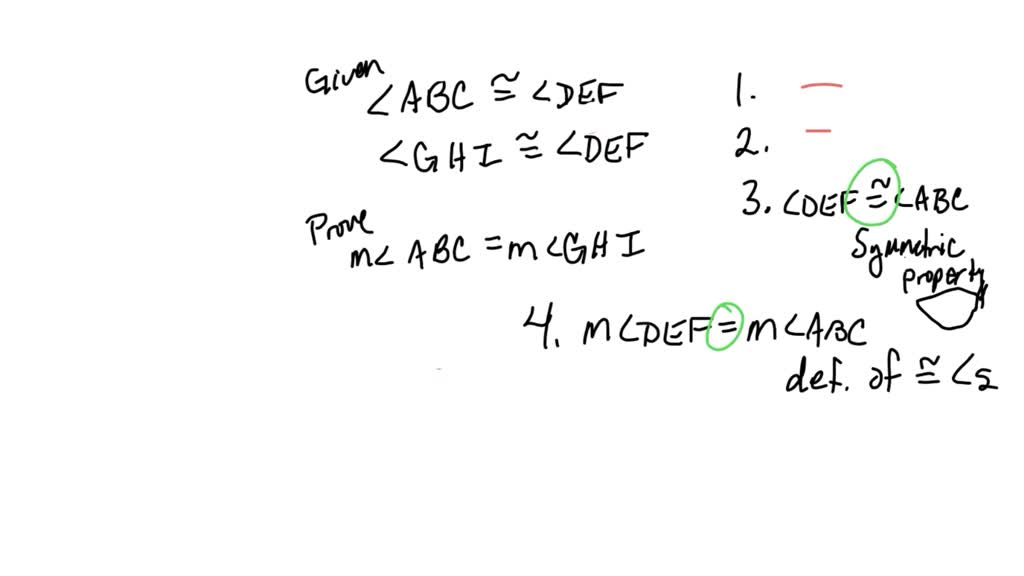 Given
<ABC ≅ <DEF
<GHI ≅ <DEF
Prove
m< ABC = m<GHI
1. —
2. —
3. <DEF ≅ <ABC
Symmetric
property
4. m<DEF = m<ABC
def. of ≅ <s